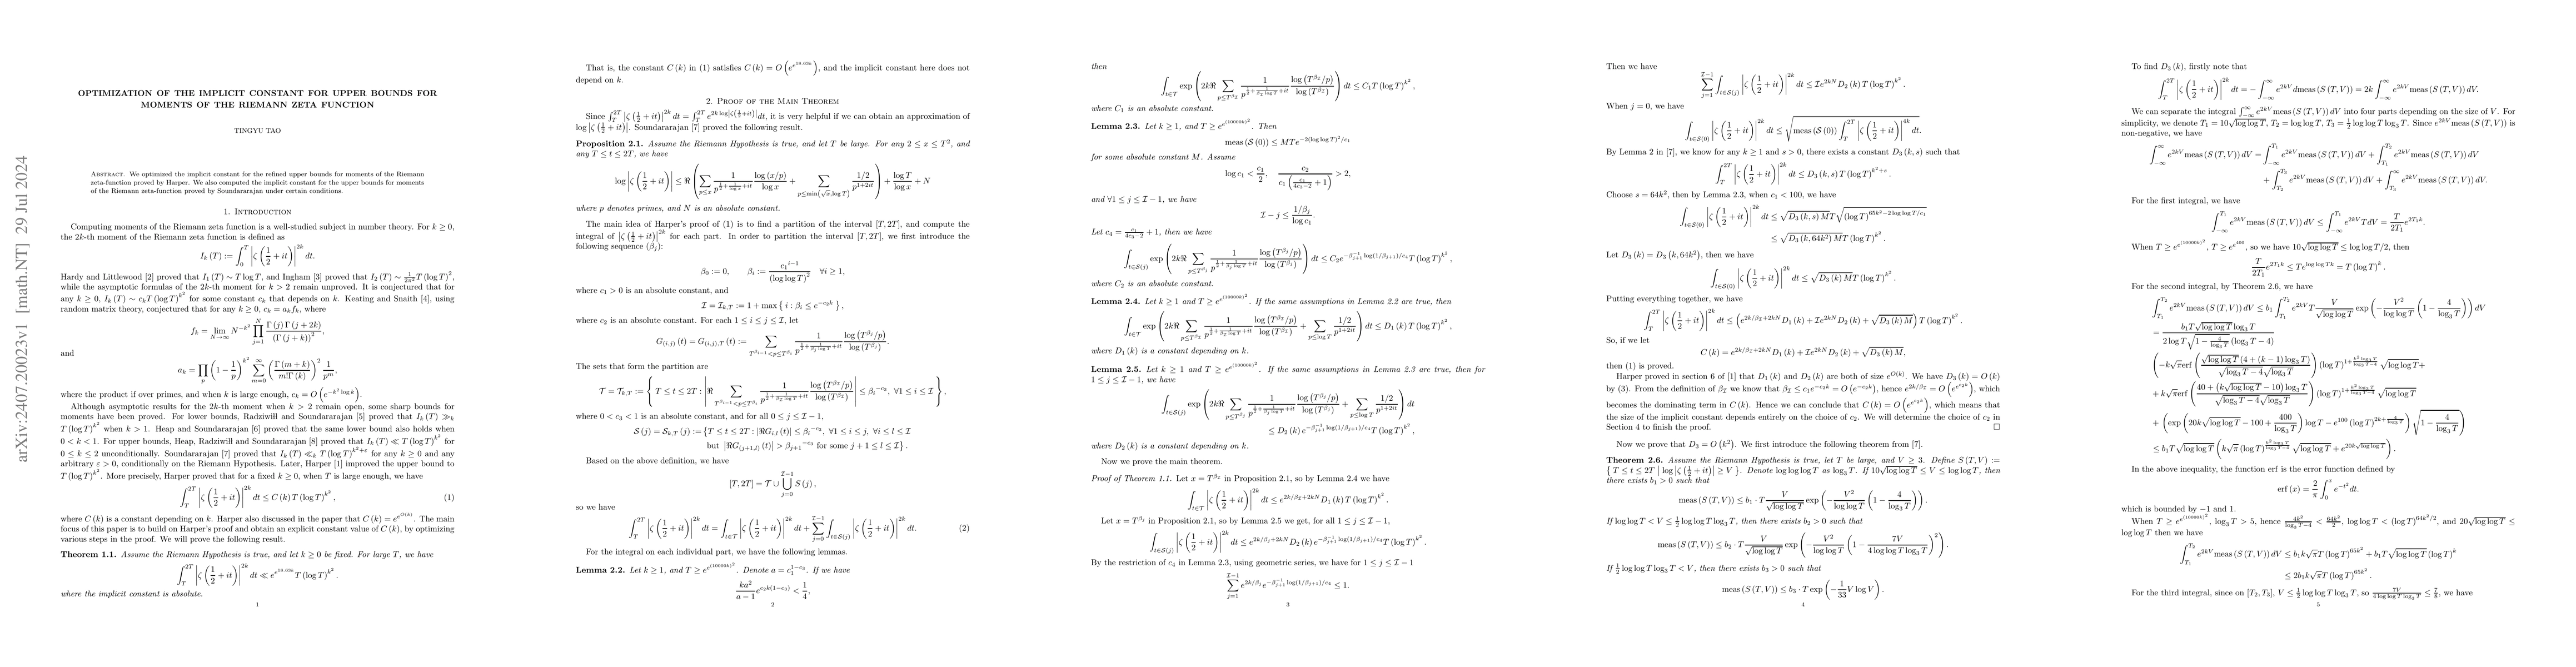 arXiv:2407.20023v1 [math.NT] 29 Jul 2024
OPTIMIZATION OF THE IMPLICIT CONSTANT FOR UPPER BOUNDS FOR
MOMENTS OF THE RIEMANN ZETA FUNCTION
TINGYU TAO
Abstract. We optimized the implicit constant for the refined upper bounds for moments of the Riemann
zeta-function proved by Harper. We also computed the implicit constant for the upper bounds for moments
of the Riemann zeta-function proved by Soundararajan under certain conditions.
1. Introduction
Computing moments of the Riemann zeta function is a well-studied subject in number theory. For k ≥ 0,
the 2k-th moment of the Riemann zeta function is defined as
I_k (T) := ∫_0^T |ζ (1/2 + it)|^{2k} dt.
Hardy and Littlewood [2] proved that I_1 (T) ∼ T log T, and Ingham [3] proved that I_2 (T) ∼ 1/(2π²) T (log T)^4,
while the asymptotic formulas of the 2k-th moment for k > 2 remain unproved. It is conjectured that for
any k ≥ 0, I_k (T) ∼ c_k T (log T)^{k²} for some constant c_k that depends on k. Keating and Snaith [4], using
random matrix theory, conjectured that for any k ≥ 0, c_k = a_k f_k, where
f_k = lim_{N→∞} N^{-k²} ∏_{j=1}^N Γ (j) Γ (j + 2k) / (Γ (j + k))²,
and
a_k = ∏_p (1 − 1/p)^{k²} ∑_{m=0}^∞ (Γ (m + k) / m!Γ (k))² 1/p^m,
where the product if over primes, and when k is large enough, c_k = O (e^{-k² log k}).
Although asymptotic results for the 2k-th moment when k > 2 remain open, some sharp bounds for
moments have been proved. For lower bounds, Radziwiłł and Soundararajan [5] proved that I_k (T) ≫_k
T (log T)^{k²} when k > 1. Heap and Soundararajan [6] proved that the same lower bound also holds when
0 < k < 1. For upper bounds, Heap, Radziwiłł and Soundararajan [8] proved that I_k (T) ≪ T (log T)^{k²} for
0 ≤ k ≤ 2 unconditionally. Soundararajan [7] proved that I_k (T) ≪_k T (log T)^{k²+ε} for any k ≥ 0 and any
arbitrary ε > 0, conditionally on the Riemann Hypothesis. Later, Harper [1] improved the upper bound to
T (log T)^{k²}. More precisely, Harper proved that for a fixed k ≥ 0, when T is large enough, we have
∫_T^{2T} |ζ (1/2 + it)|^{2k} dt ≤ C (k) T (log T)^{k²}, (1)
where C (k) is a constant depending on k. Harper also discussed in the paper that C (k) = e^{e^{O(k)}}. The main
focus of this paper is to build on Harper's proof and obtain an explicit constant value of C (k), by optimizing
various steps in the proof. We will prove the following result.
Theorem 1.1. Assume the Riemann Hypothesis is true, and let k ≥ 0 be fixed. For large T, we have
∫_T^{2T} |ζ (1/2 + it)|^{2k} dt ≪ e^{e^{18.63k}} T (log T)^{k²}.
where the implicit constant is absolute.
1
That is, the constant C (k) in (1) satisfies C (k) = O (e^{e^{18.63k}}), and the implicit constant here does not
depend on k.
2. Proof of the Main Theorem
Since ∫_T^{2T} |ζ (1/2 + it)|^{2k} dt = ∫_T^{2T} e^{2k log|ζ(1/2+it)|} dt, it is very helpful if we can obtain an approximation of
log |ζ (1/2 + it)|. Soundararajan [7] proved the following result.
Proposition 2.1. Assume the Riemann Hypothesis is true, and let T be large. For any 2 ≤ x ≤ T², and
any T ≤ t ≤ 2T, we have
log |ζ (1/2 + it)| ≤ ℜ (∑_{p≤x} 1/p^{1/2 + 1/log x + it} log (x/p)/log x + ∑_{p≤min{√x, log T}} (1/2)/p^{1+2it}) + log T/log x + N
where p denotes primes, and N is an absolute constant.
The main idea of Harper's proof of (1) is to find a partition of the interval [T, 2T], and compute the
integral of |ζ (1/2 + it)|^{2k} for each part. In order to partition the interval [T, 2T], we first introduce the
following sequence (β_j):
β_0 := 0, β_i := c_1^{i−1} / (log log T)² ∀i ≥ 1,
where c_1 > 0 is an absolute constant, and
ℐ = ℐ_{k,T} := 1 + max { i : β_i ≤ e^{−c_2 k} },
where c_2 is an absolute constant. For each 1 ≤ i ≤ j ≤ ℐ, let
G_{(i,j)} (t) = G_{(i,j),T} (t) := ∑_{T^{β_{i−1}}<p≤T^{β_i}} 1/p^{1/2 + 1/(β_j log T) + it} log (T^{β_j}/p)/log (T^{β_j}).
The sets that form the partition are
𝒯 = 𝒯_{k,T} := { T ≤ t ≤ 2T : |ℜ ∑_{T^{β_{i−1}}<p≤T^{β_i}} 1/p^{1/2 + 1/(β_ℐ log T) + it} log (T^{β_ℐ}/p)/log (T^{β_ℐ})| ≤ β_i^{−c_3}, ∀1 ≤ i ≤ ℐ },
where 0 < c_3 < 1 is an absolute constant, and for all 0 ≤ j ≤ ℐ − 1,
𝒮 (j) = 𝒮_{k,T} (j) := {T ≤ t ≤ 2T : |ℜG_{i,l} (t)| ≤ β_i^{−c_3}, ∀1 ≤ i ≤ j, ∀i ≤ l ≤ ℐ
but |ℜG_{(j+1,l)} (t)| > β_{j+1}^{−c_3} for some j + 1 ≤ l ≤ ℐ}.
Based on the above definition, we have
[T, 2T] = 𝒯 ∪ ⋃_{j=0}^{ℐ−1} S (j),
so we have
∫_T^{2T} |ζ (1/2 + it)|^{2k} dt = ∫_{t∈𝒯} |ζ (1/2 + it)|^{2k} dt + ∑_{j=0}^{ℐ−1} ∫_{t∈𝒮(j)} |ζ (1/2 + it)|^{2k} dt. (2)
For the integral on each individual part, we have the following lemmas.
Lemma 2.2. Let k ≥ 1, and T ≥ e^{e^{(10000k)²}}. Denote a = c_1^{1−c_3}. If we have
ka²/(a − 1) e^{c_2 k(1−c_3)} < 1/4,
2
then
∫_{t∈𝒯} exp (2kℜ ∑_{p≤T^{β_ℐ}} 1/p^{1/2 + 1/(β_ℐ log T) + it} log (T^{β_ℐ}/p)/log (T^{β_ℐ})) dt ≤ C_1 T (log T)^{k²},
where C_1 is an absolute constant.
Lemma 2.3. Let k ≥ 1, and T ≥ e^{e^{(10000k)²}}. Then
meas (𝒮 (0)) ≤ MTe^{−2(log log T)²/c_1}
for some absolute constant M. Assume
log c_1 < c_1/2, c_2 / (c_1 (c_1/(4c_3−2) + 1)) > 2,
and ∀1 ≤ j ≤ ℐ − 1, we have
ℐ − j ≤ (1/β_j) / log c_1.
Let c_4 = c_1/(4c_3−2) + 1, then we have
∫_{t∈𝒮(j)} exp (2kℜ ∑_{p≤T^{β_j}} 1/p^{1/2 + 1/(β_j log T) + it} log (T^{β_j}/p)/log (T^{β_j})) dt ≤ C_2 e^{−β_{j+1}^{−1} log(1/β_{j+1})/c_4} T (log T)^{k²},
where C_2 is an absolute constant.
Lemma 2.4. Let k ≥ 1 and T ≥ e^{e^{(10000k)²}}. If the same assumptions in Lemma 2.2 are true, then
∫_{t∈𝒯} exp (2kℜ ∑_{p≤T^{β_ℐ}} 1/p^{1/2 + 1/(β_ℐ log T) + it} log (T^{β_ℐ}/p)/log (T^{β_ℐ}) + ∑_{p≤log T} (1/2)/p^{1+2it}) dt ≤ D_1 (k) T (log T)^{k²},
where D_1 (k) is a constant depending on k.
Lemma 2.5. Let k ≥ 1 and T ≥ e^{e^{(10000k)²}}. If the same assumptions in Lemma 2.3 are true, then for
1 ≤ j ≤ ℐ − 1, we have
∫_{t∈𝒮(j)} exp (2kℜ ∑_{p≤T^{β_j}} 1/p^{1/2 + 1/(β_j log T) + it} log (T^{β_j}/p)/log (T^{β_j}) + ∑_{p≤log T} (1/2)/p^{1+2it}) dt
≤ D_2 (k) e^{−β_{j+1}^{−1} log(1/β_{j+1})/c_4} T (log T)^{k²},
where D_2 (k) is a constant depending on k.
Now we prove the main theorem.
Proof of Theorem 1.1. Let x = T^{β_ℐ} in Proposition 2.1, so by Lemma 2.4 we have
∫_{t∈𝒯} |ζ (1/2 + it)|^{2k} dt ≤ e^{2k/β_ℐ+2kN} D_1 (k) T (log T)^{k²}.
Let x = T^{β_j} in Proposition 2.1, so by Lemma 2.5 we get, for all 1 ≤ j ≤ ℐ − 1,
∫_{t∈𝒮(j)} |ζ (1/2 + it)|^{2k} dt ≤ e^{2k/β_j+2kN} D_2 (k) e^{−β_{j+1}^{−1} log(1/β_{j+1})/c_4} T (log T)^{k²}.
By the restriction of c_4 in Lemma 2.3, using geometric series, we have for 1 ≤ j ≤ ℐ − 1
∑_{j=1}^{ℐ−1} e^{2k/β_j} e^{−β_{j+1}^{−1} log(1/β_{j+1})/c_4} ≤ 1.
3
Then we have
∑_{j=1}^{ℐ−1} ∫_{t∈𝒮(j)} |ζ (1/2 + it)|^{2k} dt ≤ ℐe^{2kN} D_2 (k) T (log T)^{k²}.
When j = 0, we have
∫_{t∈𝒮(0)} |ζ (1/2 + it)|^{2k} dt ≤ √(meas (𝒮 (0)) ∫_T^{2T} |ζ (1/2 + it)|^{4k} dt).
By Lemma 2 in [7], we know for any k ≥ 1 and s > 0, there exists a constant D_3 (k, s) such that
∫_T^{2T} |ζ (1/2 + it)|^{2k} dt ≤ D_3 (k, s) T (log T)^{k²+s}.
Choose s = 64k², then by Lemma 2.3, when c_1 < 100, we have
∫_{t∈𝒮(0)} |ζ (1/2 + it)|^{2k} dt ≤ √(D_3 (k, s) M) T √((log T)^{65k²−2 log log T/c_1})
≤ √(D_3 (k, 64k²) M) T (log T)^{k²}.
Let D_3 (k) = D_3 (k, 64k²), then we have
∫_{t∈𝒮(0)} |ζ (1/2 + it)|^{2k} dt ≤ √(D_3 (k) M) T (log T)^{k²}.
Putting everything together, we have
∫_T^{2T} |ζ (1/2 + it)|^{2k} dt ≤ (e^{2k/β_ℐ+2kN} D_1 (k) + ℐe^{2kN} D_2 (k) + √(D_3 (k) M)) T (log T)^{k²}.
So, if we let
C (k) = e^{2k/β_ℐ+2kN} D_1 (k) + ℐe^{2kN} D_2 (k) + √(D_3 (k) M),
then (1) is proved.
Harper proved in section 6 of [1] that D_1 (k) and D_2 (k) are both of size e^{O(k)}. We have D_3 (k) = O (k)
by (3). From the definition of β_ℐ we know that β_ℐ ≤ c_1 e^{−c_2 k} = O (e^{−c_2 k}), hence e^{2k/β_ℐ} = O (e^{e^{c_2 k}}), which
becomes the dominating term in C (k). Hence we can conclude that C (k) = O (e^{e^{c_2 k}}), which means that
the size of the implicit constant depends entirely on the choice of c_2. We will determine the choice of c_2 in
Section 4 to finish the proof. □
Now we prove that D_3 = O (k²). We first introduce the following theorem from [7].
Theorem 2.6. Assume the Riemann Hypothesis is true, let T be large, and V ≥ 3. Define S (T, V) :=
{ T ≤ t ≤ 2T | log |ζ (1/2 + it)| ≥ V }. Denote log log log T as log_3 T. If 10√(log log T) ≤ V ≤ log log T, then
there exists b_1 > 0 such that
meas (S (T, V)) ≤ b_1 · T V/√(log log T) exp (− V²/log log T (1 − 4/log_3 T)).
If log log T < V ≤ 1/2 log log T log_3 T, then there exists b_2 > 0 such that
meas (S (T, V)) ≤ b_2 · T V/√(log log T) exp (− V²/log log T (1 − 7V/(4 log log T log_3 T))²).
If 1/2 log log T log_3 T < V, then there exists b_3 > 0 such that
meas (S (T, V)) ≤ b_3 · T exp (− 1/33 V log V).
4
To find D_3 (k), firstly note that
∫_T^{2T} |ζ (1/2 + it)|^{2k} dt = − ∫_{−∞}^∞ e^{2kV} dmeas (S (T, V)) = 2k ∫_{−∞}^∞ e^{2kV} meas (S (T, V)) dV.
We can separate the integral ∫_{−∞}^∞ e^{2kV} meas (S (T, V)) dV into four parts depending on the size of V. For
simplicity, we denote T_1 = 10√(log log T), T_2 = log log T, T_3 = 1/2 log log T log_3 T. Since e^{2kV} meas (S (T, V)) is
non-negative, we have
∫_{−∞}^∞ e^{2kV} meas (S (T, V)) dV = ∫_{−∞}^{T_1} e^{2kV} meas (S (T, V)) dV + ∫_{T_1}^{T_2} e^{2kV} meas (S (T, V)) dV
+ ∫_{T_2}^{T_3} e^{2kV} meas (S (T, V)) dV + ∫_{T_3}^∞ e^{2kV} meas (S (T, V)) dV.
For the first integral, we have
∫_{−∞}^{T_1} e^{2kV} meas (S (T, V)) dV ≤ ∫_{−∞}^{T_1} e^{2kV} T dV = T/(2T_1) e^{2T_1 k}.
When T ≥ e^{e^{(10000k)²}}, T ≥ e^{e^{400}}, so we have 10√(log log T) ≤ log log T/2, then
T/(2T_1) e^{2T_1 k} ≤ Te^{log log Tk} = T (log T)^k.
For the second integral, by Theorem 2.6, we have
∫_{T_1}^{T_2} e^{2kV} meas (S (T, V)) dV ≤ b_1 ∫_{T_1}^{T_2} e^{2kV} T V/√(log log T) exp (− V²/log log T (1 − 4/log_3 T)) dV
= b_1 T√(log log T) log_3 T / (2 log T√(1 − 4/log_3 T) (log_3 T − 4))
(−k√π erf (√(log log T) (4 + (k − 1) log_3 T) / (√(log_3 T − 4)√(log_3 T))) (log T)^{1+ k² log_3 T/(log_3 T−4)} √(log log T)+
+ k√π erf (40 + (k√(log log T) − 10) log_3 T / (√(log_3 T − 4)√(log_3 T))) (log T)^{1+ k² log_3 T/(log_3 T−4)} √(log log T)
+ (exp (20k√(log log T) − 100 + 400/log_3 T) log T − e^{100} (log T)^{2k+ 4/log_3 T}) √(1 − 4/log_3 T))
≤ b_1 T√(log log T) (k√π (log T)^{k² log_3 T/(log_3 T−4)} √(log log T) + e^{20k√(log log T)}).
In the above inequality, the function erf is the error function defined by
erf (x) = 2/π ∫_0^x e^{−t²} dt.
which is bounded by −1 and 1.
When T ≥ e^{e^{(10000k)²}}, log_3 T > 5, hence 4k²/(log_3 T−4) < 64k²/2, log log T < (log T)^{64k²/2}, and 20√(log log T) ≤
log log T then we have
∫_{T_1}^{T_2} e^{2kV} meas (S (T, V)) dV ≤ b_1 k√π T (log T)^{65k²} + b_1 T√(log log T) (log T)^k
≤ 2b_1 k√π T (log T)^{65k²}.
For the third integral, since on [T_2, T_3], V ≤ 1/2 log log T log_3 T, so 7V/(4 log log T log_3 T) ≤ 7/8, we have
5